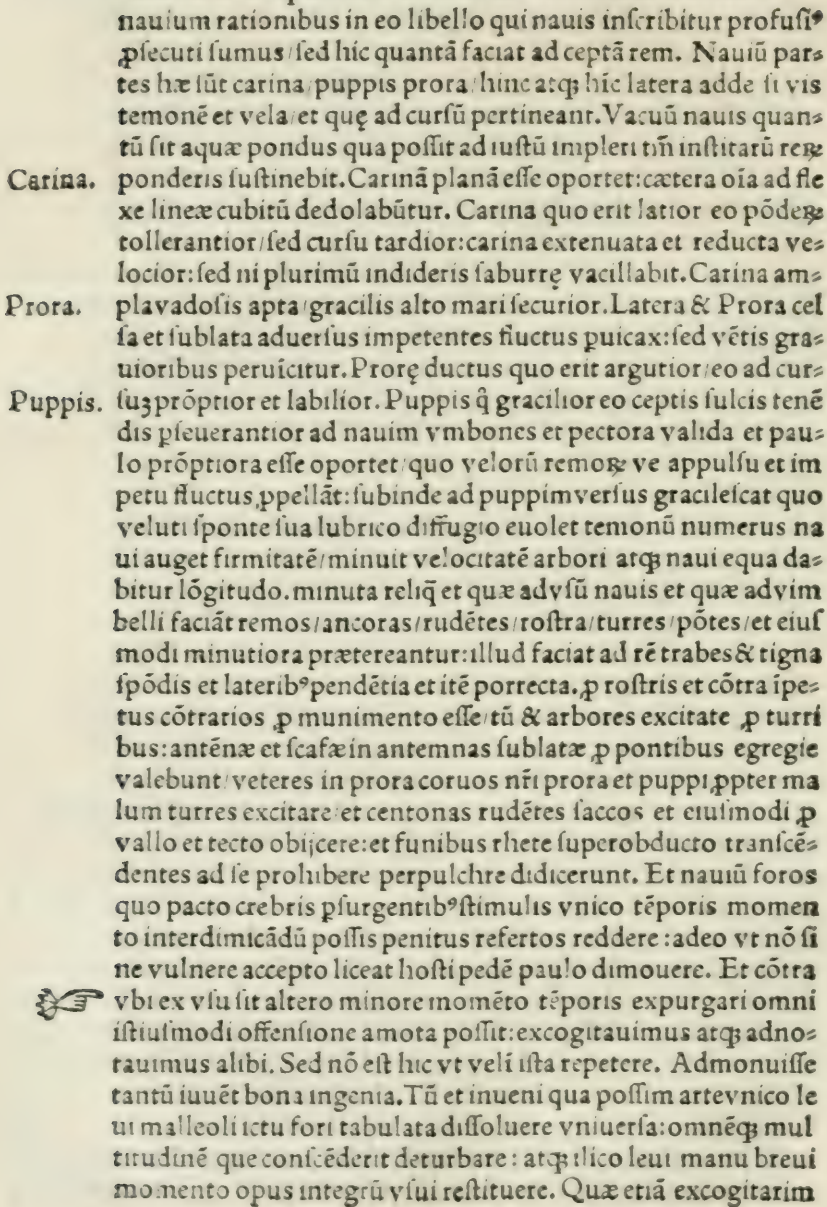 nauium rationibus in eo libello qui nauis inſcribitur profuſiꝰ
ꝓſecuti ſumus/ſed hic quantā faciat ad ceptā rem. Nauiū par⸗
tes hæ ſūt carina/puppis prora/hinc atqꝫ hic latera adde ſi vis
temonē et vela/et quę ad curſū pertineant. Vacuū nauis quan⸗
tū ſit aquæ pondus qua poſſit ad iuſtū impleri tm̄ inſtitarū reꝝ
Carina. ponderis ſuſtinebit. Carinā planā eſſe oportet: cætera oīa ad fle
xe lineæ cubitū dedolabūtur. Carina quo erit latior eo pōdeꝝ
tollerantior/ſed curſu tardior: carina extenuata et reducta ve⸗
locior: ſed ni plurimū indideris ſaburrę vacillabit. Carina am⸗
Prora. pla vadoſis apta/gracilis alto mari ſecurior. Latera & Prora cel
ſa et ſublata aduerſus impetentes fluctus puicax: ſed vētis gra⸗
uioribus peruicitur. Prorę ductus quo erit argutior/eo ad cur⸗
Puppis. ſuꝫ prōptior et labilior. Puppis q̄ gracilior eo ceptis ſulcis tenē
dis pſeuerantior ad nauim vmbones et pectora valida et pau⸗
lo prōptiora eſſe oportet/quo velorū remoꝝ ve appulſu et im
petu fluctus ꝓpellāt: ſubinde ad puppim verſus gracileſcat quo
veluti ſponte ſua lubrico diffugio euolet temonū numerus na
ui auget firmitatē/minuit velocitatē arbori atqꝫ naui equa da⸗
bitur lōgitudo. minuta reliq̄ et quæ ad vſū nauis et quæ ad vim
belli faciāt remos/ancoras/rudētes/roſtra/turres/pōtes/et eiuſ
modi minutiora prætereantur: illud faciat ad rē trabes & tigna
ſpōdis et lateribꝰ pendētia et itē porrecta. ꝓ roſtris et cōtra īpe⸗
tus cōtrarios ꝓ munimento eſſe/tū & arbores excitate ꝓ turri
bus: antēnæ et ſcafæ in antemnas ſublatæ ꝓ pontibus egregie
valebunt/veteres in prora coruos nr̄i prora et puppi ꝓpter ma
lum turres excitare/et centonas rudētes ſaccos et eiuſmodi ꝓ
vallo et tecto obijcere: et funibus rhete ſuperobducto tranſcē⸗
dentes ad ſe prohibere perpulchre didicerunt. Et nauiū foros
quo pacto crebris pſurgentibꝰ ſtimulis vnico tēporis momen
to interdimicādū poſſis penitus refertos reddere: adeo vt nō ſi
ne vulnere accepto liceat hoſti pedē paulo dimouere. Et cōtra
vbi ex vſu ſit altero minore momēto tēporis expurgari omni
iſtiuſmodi offenſione amota poſſit: excogitauimus atqꝫ adno⸗
tauimus alibi. Sed nō eſt hic vt velī iſta repetere. Admonuiſſe
tantū iuuēt bona ingenia. Tū et inueni qua poſſim arte vnico le
ui malleoli ictu fori tabulata diſſoluere vniuerſa: omnēqꝫ mul
titudinē que conſcēderit deturbare: atqꝫ ilico leui manu breui
momento opus integrū vſui reſtituere. Quæ etiā excogitarim